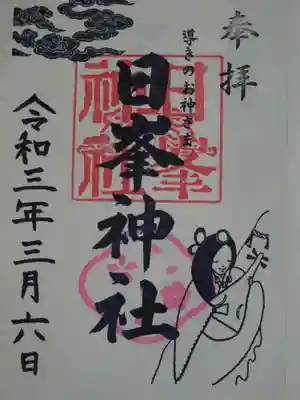 奉拝
導きのお神さま
日峯神社
日峯神社
令和三年三月六日